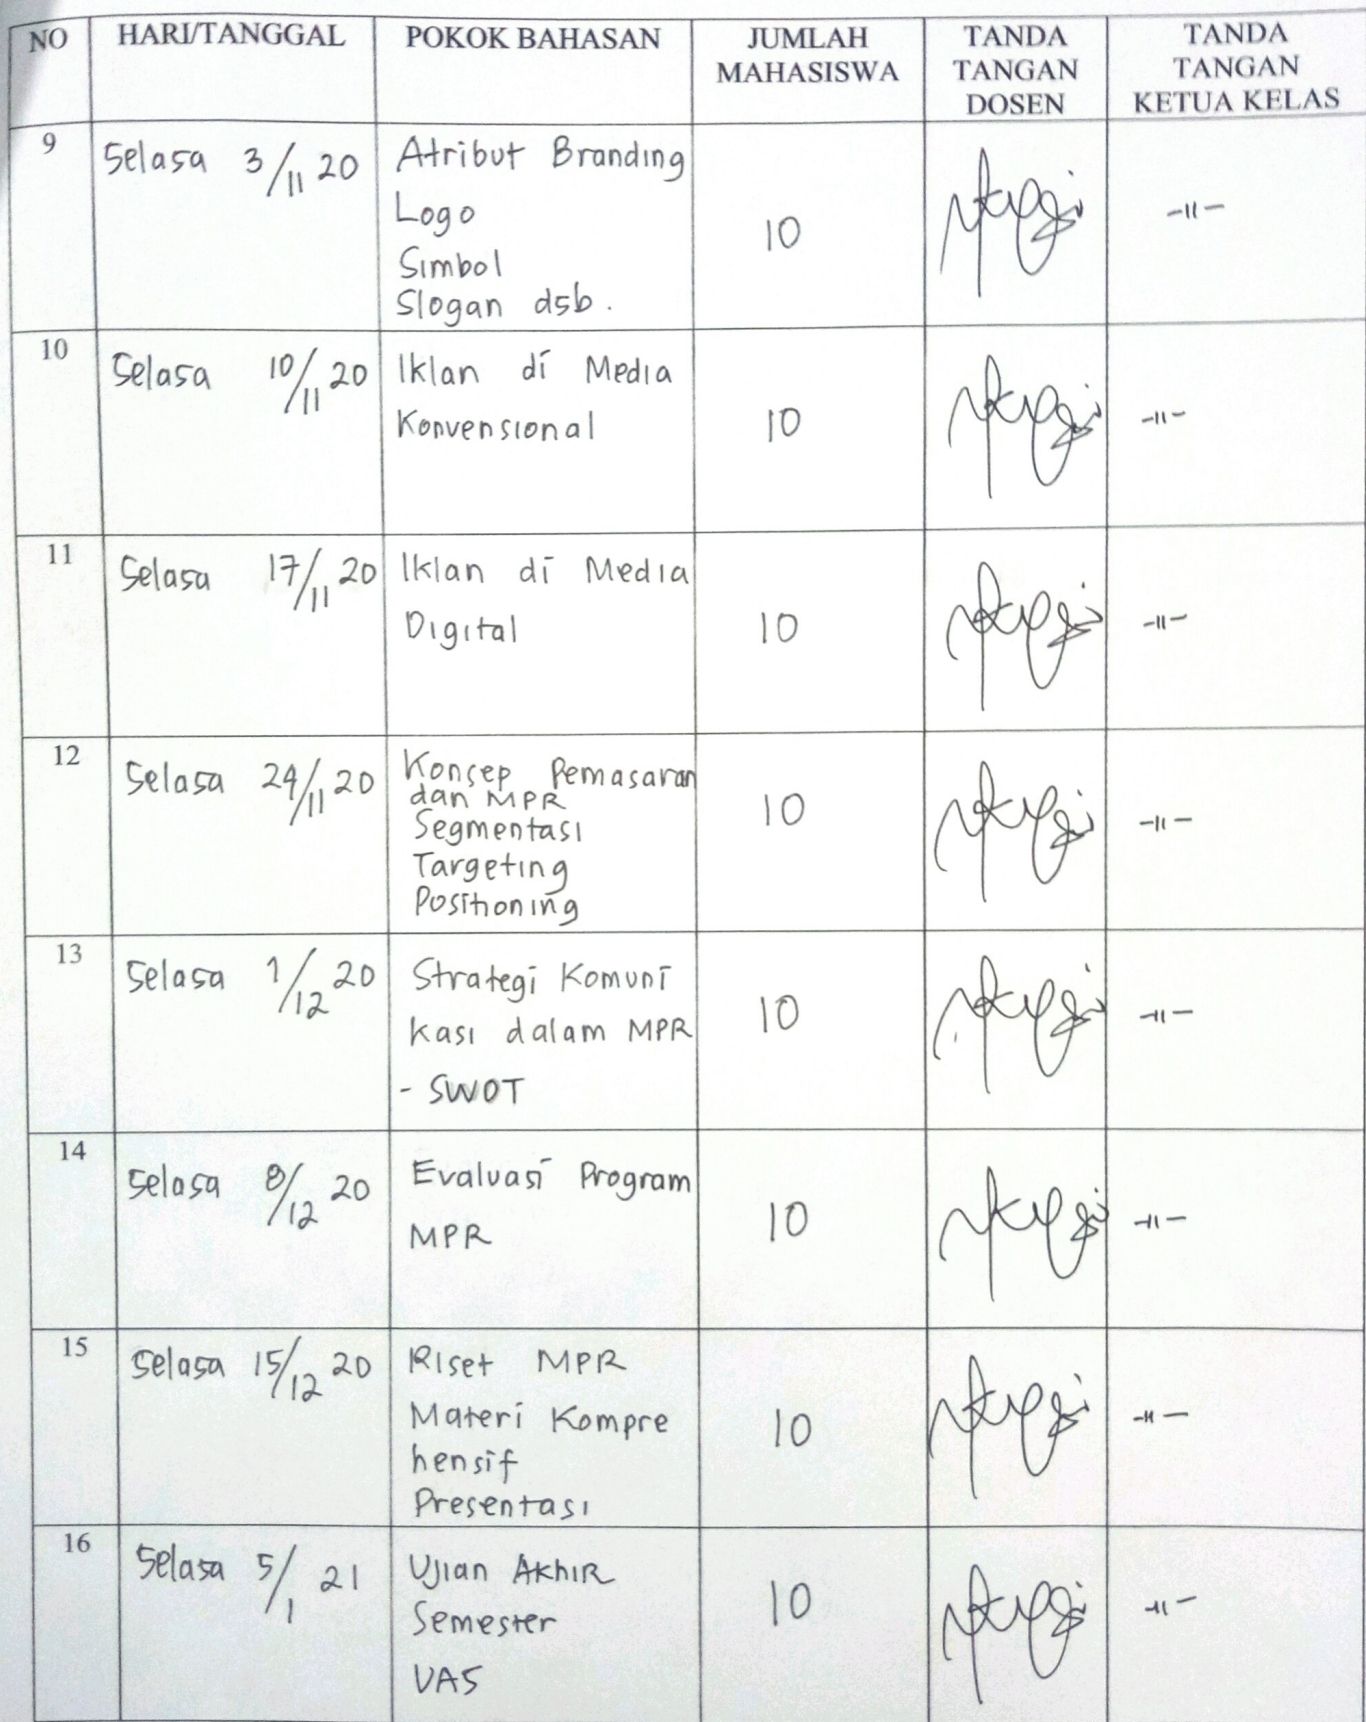 NO HARI/TANGGAL POKOK BAHASAN JUMLAH MAHASISWA TANDA TANGAN DOSEN TANDA TANGAN KETUA KELAS
9 Selasa 3/11 20 Atribut Branding 10 -11-
Logo
Simbol
Slogan dsb.
10 Selasa 10/11 20 Iklan di Media 10 -11-
Konvensional
11 Selasa 17/11 20 Iklan di Media 10 -11-
Digital
12 Selasa 24/11 20 Konsep Pemasaran 10 -11-
dan MPR
Segmentasi
Targeting
Positioning
13 Selasa 1/12 20 Strategi Komuni 10 -11-
kasi dalam MPR
- SWOT
14 Selasa 8/12 20 Evaluasi Program 10 -11-
MPR
15 Selasa 15/12 20 Riset MPR 10 -11-
Materi Kompre
hensif
Presentasi
16 Selasa 5/1 21 Ujian Akhir 10 -11-
Semester
UAS